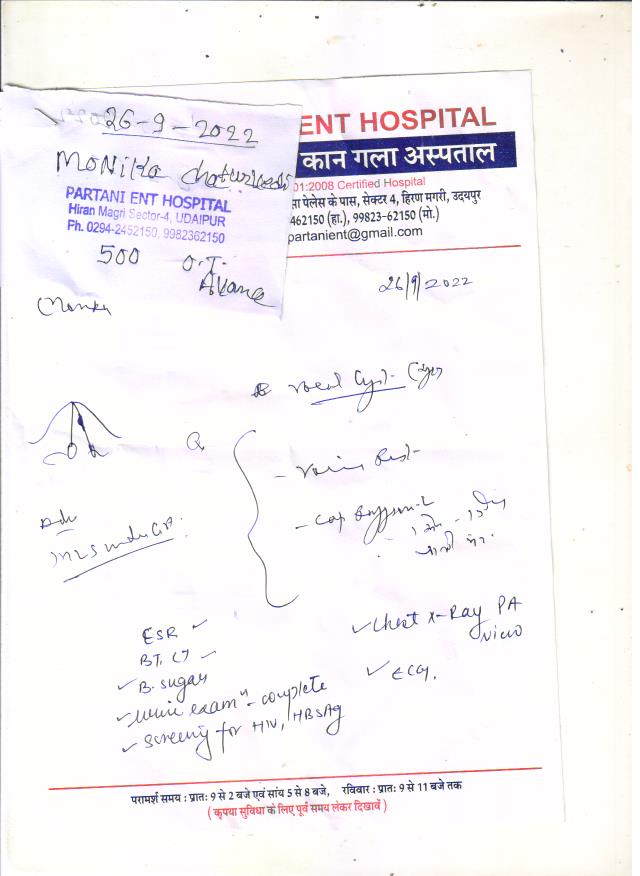 26-9-2022
MONIKA Chaturvedi
PARTANI ENT HOSPITAL
Hiran Magri Sector-4, UDAIPUR
Ph. 0294-2452150, 9982362150
500 O.T.
ENT HOSPITAL
कान गला अस्पताल
01:2008 Certified Hospital
पेलेस के पास, सेक्टर 4, हिरण मगरी, उदयपुर
462150 (हा.), 99823-62150 (मो.)
partanient@gmail.com
26/9/2022
Vocal Cyst
Adv
MLS under GA
ESR
BT. CT
B. sugar
Urine examn - complete
Screening for HIV, HBSAg
Chest X-Ray PA
View
ECG.
परामर्श समय : प्रातः 9 से 2 बजे एवं सांय 5 से 8 बजे, रविवार : प्रातः 9 से 11 बजे तक
( कृपया सुविधा के लिए पूर्व समय लेकर दिखावें )